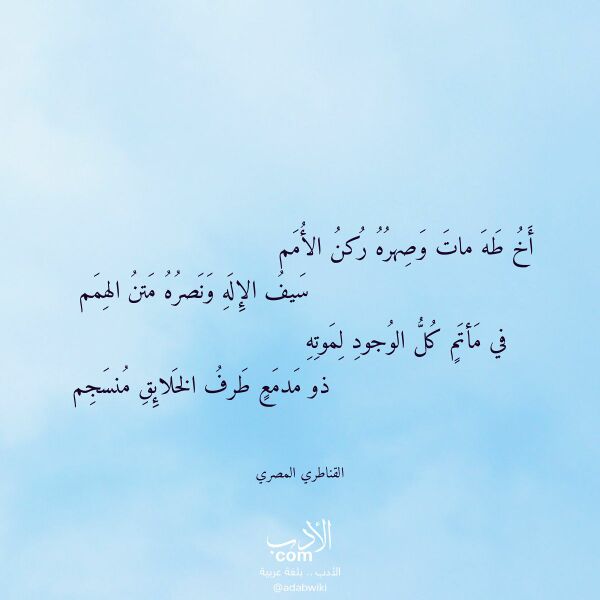 أَخُ طَهَ ماتَ وَصِهرُهُ رُكنُ الأُمَم
سَيفُ الإِلَهِ وَنَصرُهُ مَتنُ الهِمَم
في مَأتَمٍ كُلُّ الوُجودِ لِمَوتِهِ
ذو مَدمَعٍ طَرفُ الخَلايِقِ مُنسَجِم
القناطري المصري
الأدب
com
الأدب .. بلغة عربية
@adabwiki